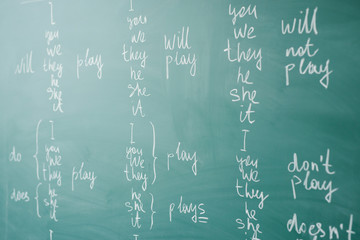 I
you
we
will they play
he
she
it
you
we
they
he
she
it
will
play
you
we
they
he
she
it
will
not
play
I
you
do we
they play
does he
she
it
I
you
we
they
play
he
she
it
plays
I
you
we
they
he
she
it
don't
play
doesn't